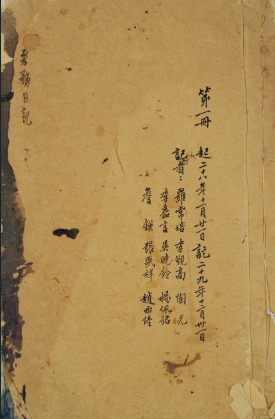 第一冊
起二十八年十一月廿一日訖二十九年十二月卅一日
記者：羅常培 李覲高 陶光
李嘉言 吳曉鈴 楊佩銘
詹鍈 張盛祥 趙西陸
務日記